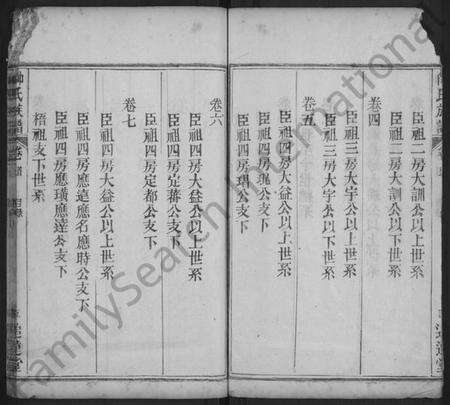 臣祖二房大訓公以上世系
臣祖二房大訓公以下世系
卷四
臣祖三房大宇公以上世系
臣祖三房大宇公以下世系
卷五
臣祖四房大益公以上世系
臣祖四房瑰公支下
臣祖四房瑁公支下
卷六
臣祖四房大益公以上世系
臣祖四房定蔣公支下
臣祖四房定都公支下
卷七
臣祖四房大益公以上世系
臣祖四房應選應名應時公支下
臣祖四房應璜應達公支下
梧祖支下世系
氏族譜
卷首
目錄
達堂
FamilySearch International